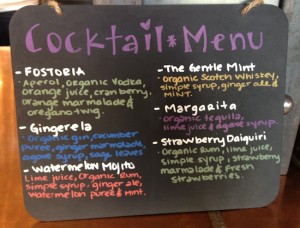 Cocktail * Menu
- FOSTORIA
Aperol, organic vodka,
orange juice, cranberry,
orange marmalade &
oregano twig.
- Gingerela
Organic gin, cucumber
pureé, ginger marmalade,
agave syrup, sage leaves
- Watermelon Mojito
Lime juice, Organic Rum,
simple syrup, ginger ale,
watermelon pureé & mint.
- The Gentle Mint
Organic Scotch Whiskey,
simple syrup, ginger ale &
MINT.
- Margarita
Organic tequila,
lime juice & agave syrup.
- Strawberry Daiquiri
Organic Rum, lime juice,
simple syrup, strawberry
marmalade & fresh
strawberries.